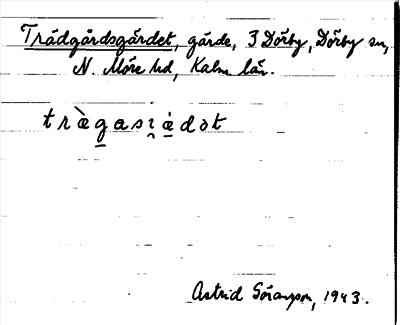 Trädgårdsgärdet, gärde, 3 Dörby, Dörby sn,
N. Möre hd, Kalm. län.
träga sı̯ȧ̈dɔt
Astrid Göransson, 1943.